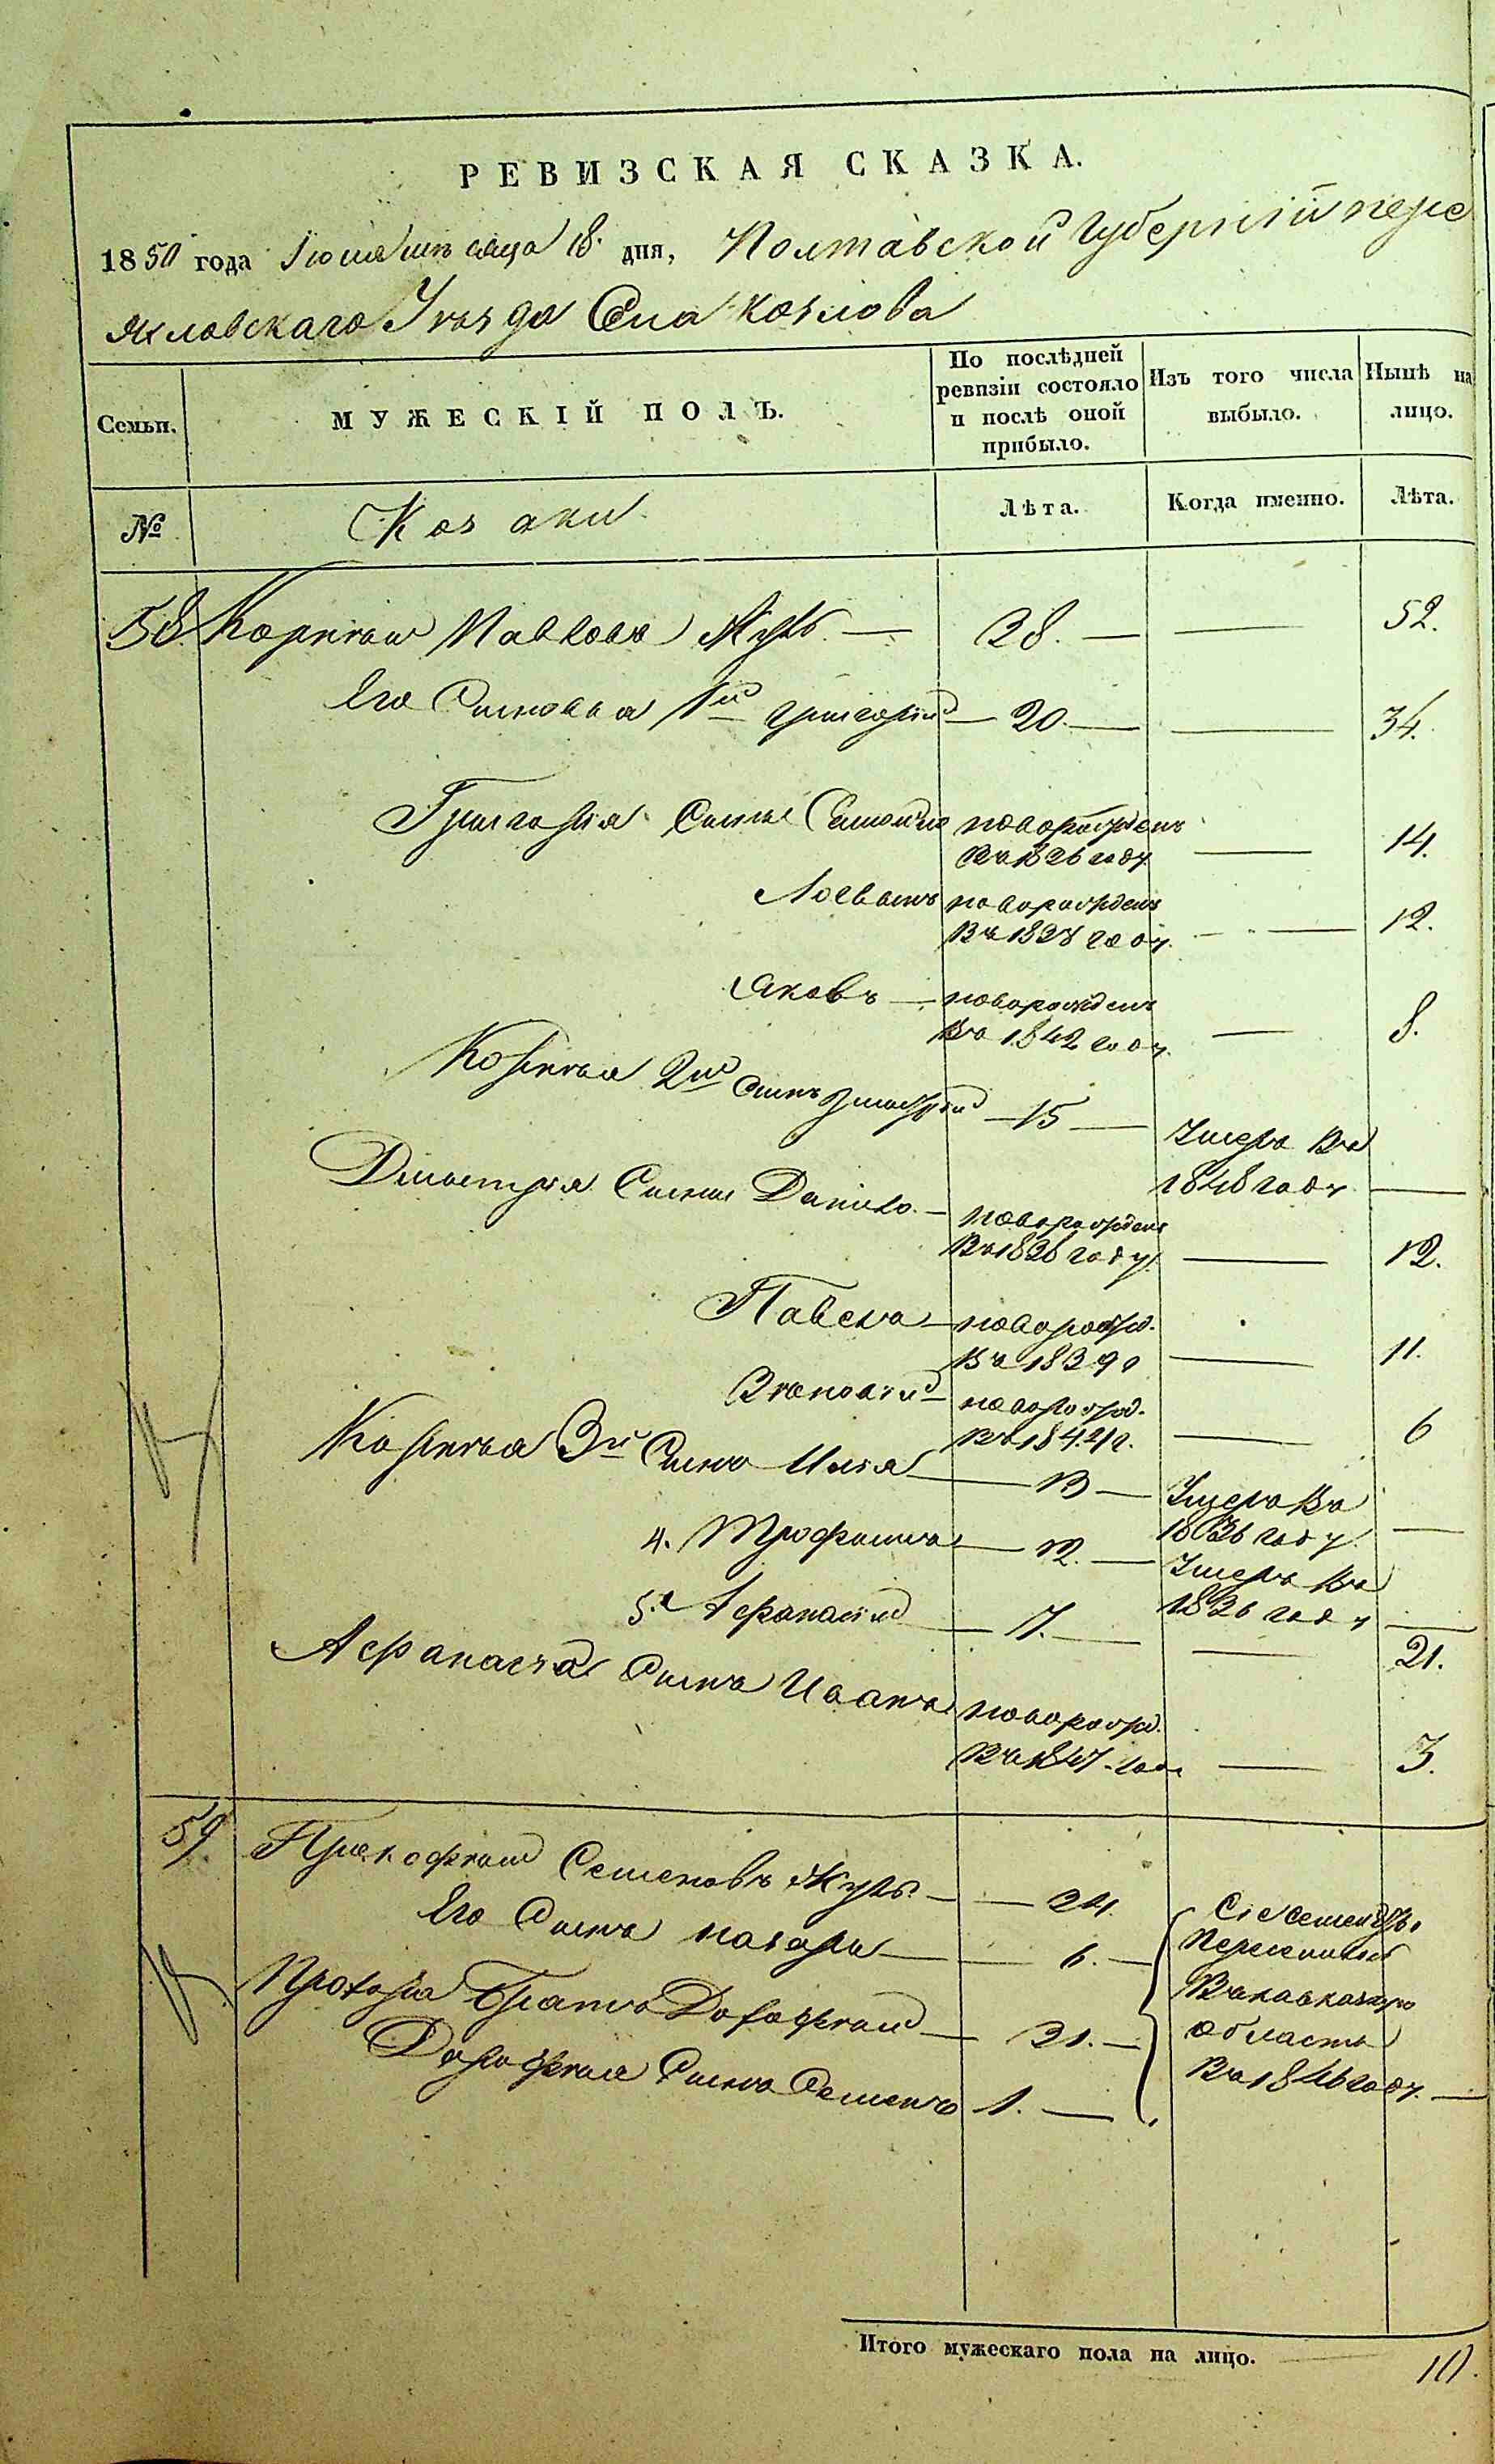 РЕВИЗСКАЯ СКАЗКА.
1850 года Іюня мѣсяца 18. дня, Полтавской Губерніи пере
яславскаго Уѣзда Села козлова
Семьи. МУЖЕСКІЙ ПОЛЪ. По послѣдней ревизіи состояло и послѣ оной прибыло. Изъ того числа выбыло. Нынѣ на лицо.
№ Козаки Лѣта. Когда именно. Лѣта.
58. Корнѣй Павловъ — 38. — — 52.
Его Сыновья 1й григорій — 20. — — 34.
Григорія Сынъ новорожденъ
въ 1836 году. — 14.
новорожденъ
въ 1838 году. — 12.
Яковъ — новорожденъ
въ 1842 году. — 8.
Корнѣя 2й Сынъ Дмитрій — 15 — Умеръ въ
1848 году. —
Дмитрія Сынъ Данило. — новорожденъ
въ 1838 году. — 12.
Павелъ — новорожд.
въ 1839 — 11.
новорожд.
въ 184 г. — 6
Корнѣя 3й Сынъ Илія — 13 — Умеръ въ
1836 году. —
4. Трофимъ — 12. — Умеръ въ
1836 году —
5й Афанасій — 7. — — 21.
Афанасія Сынъ Иванъ новорожд.
въ 1847 году — 3.
59. Прокофій Семеновъ — 24.
Его Сынъ назаръ — 6. — Сіе семейство
переселилось
Прокофія Братъ Дорофѣй — 21. — въ кавказскую
область
Дорофѣя Сынъ Семенъ 1. — въ 1846 году. —
Итого мужескаго пола на лицо. 10.